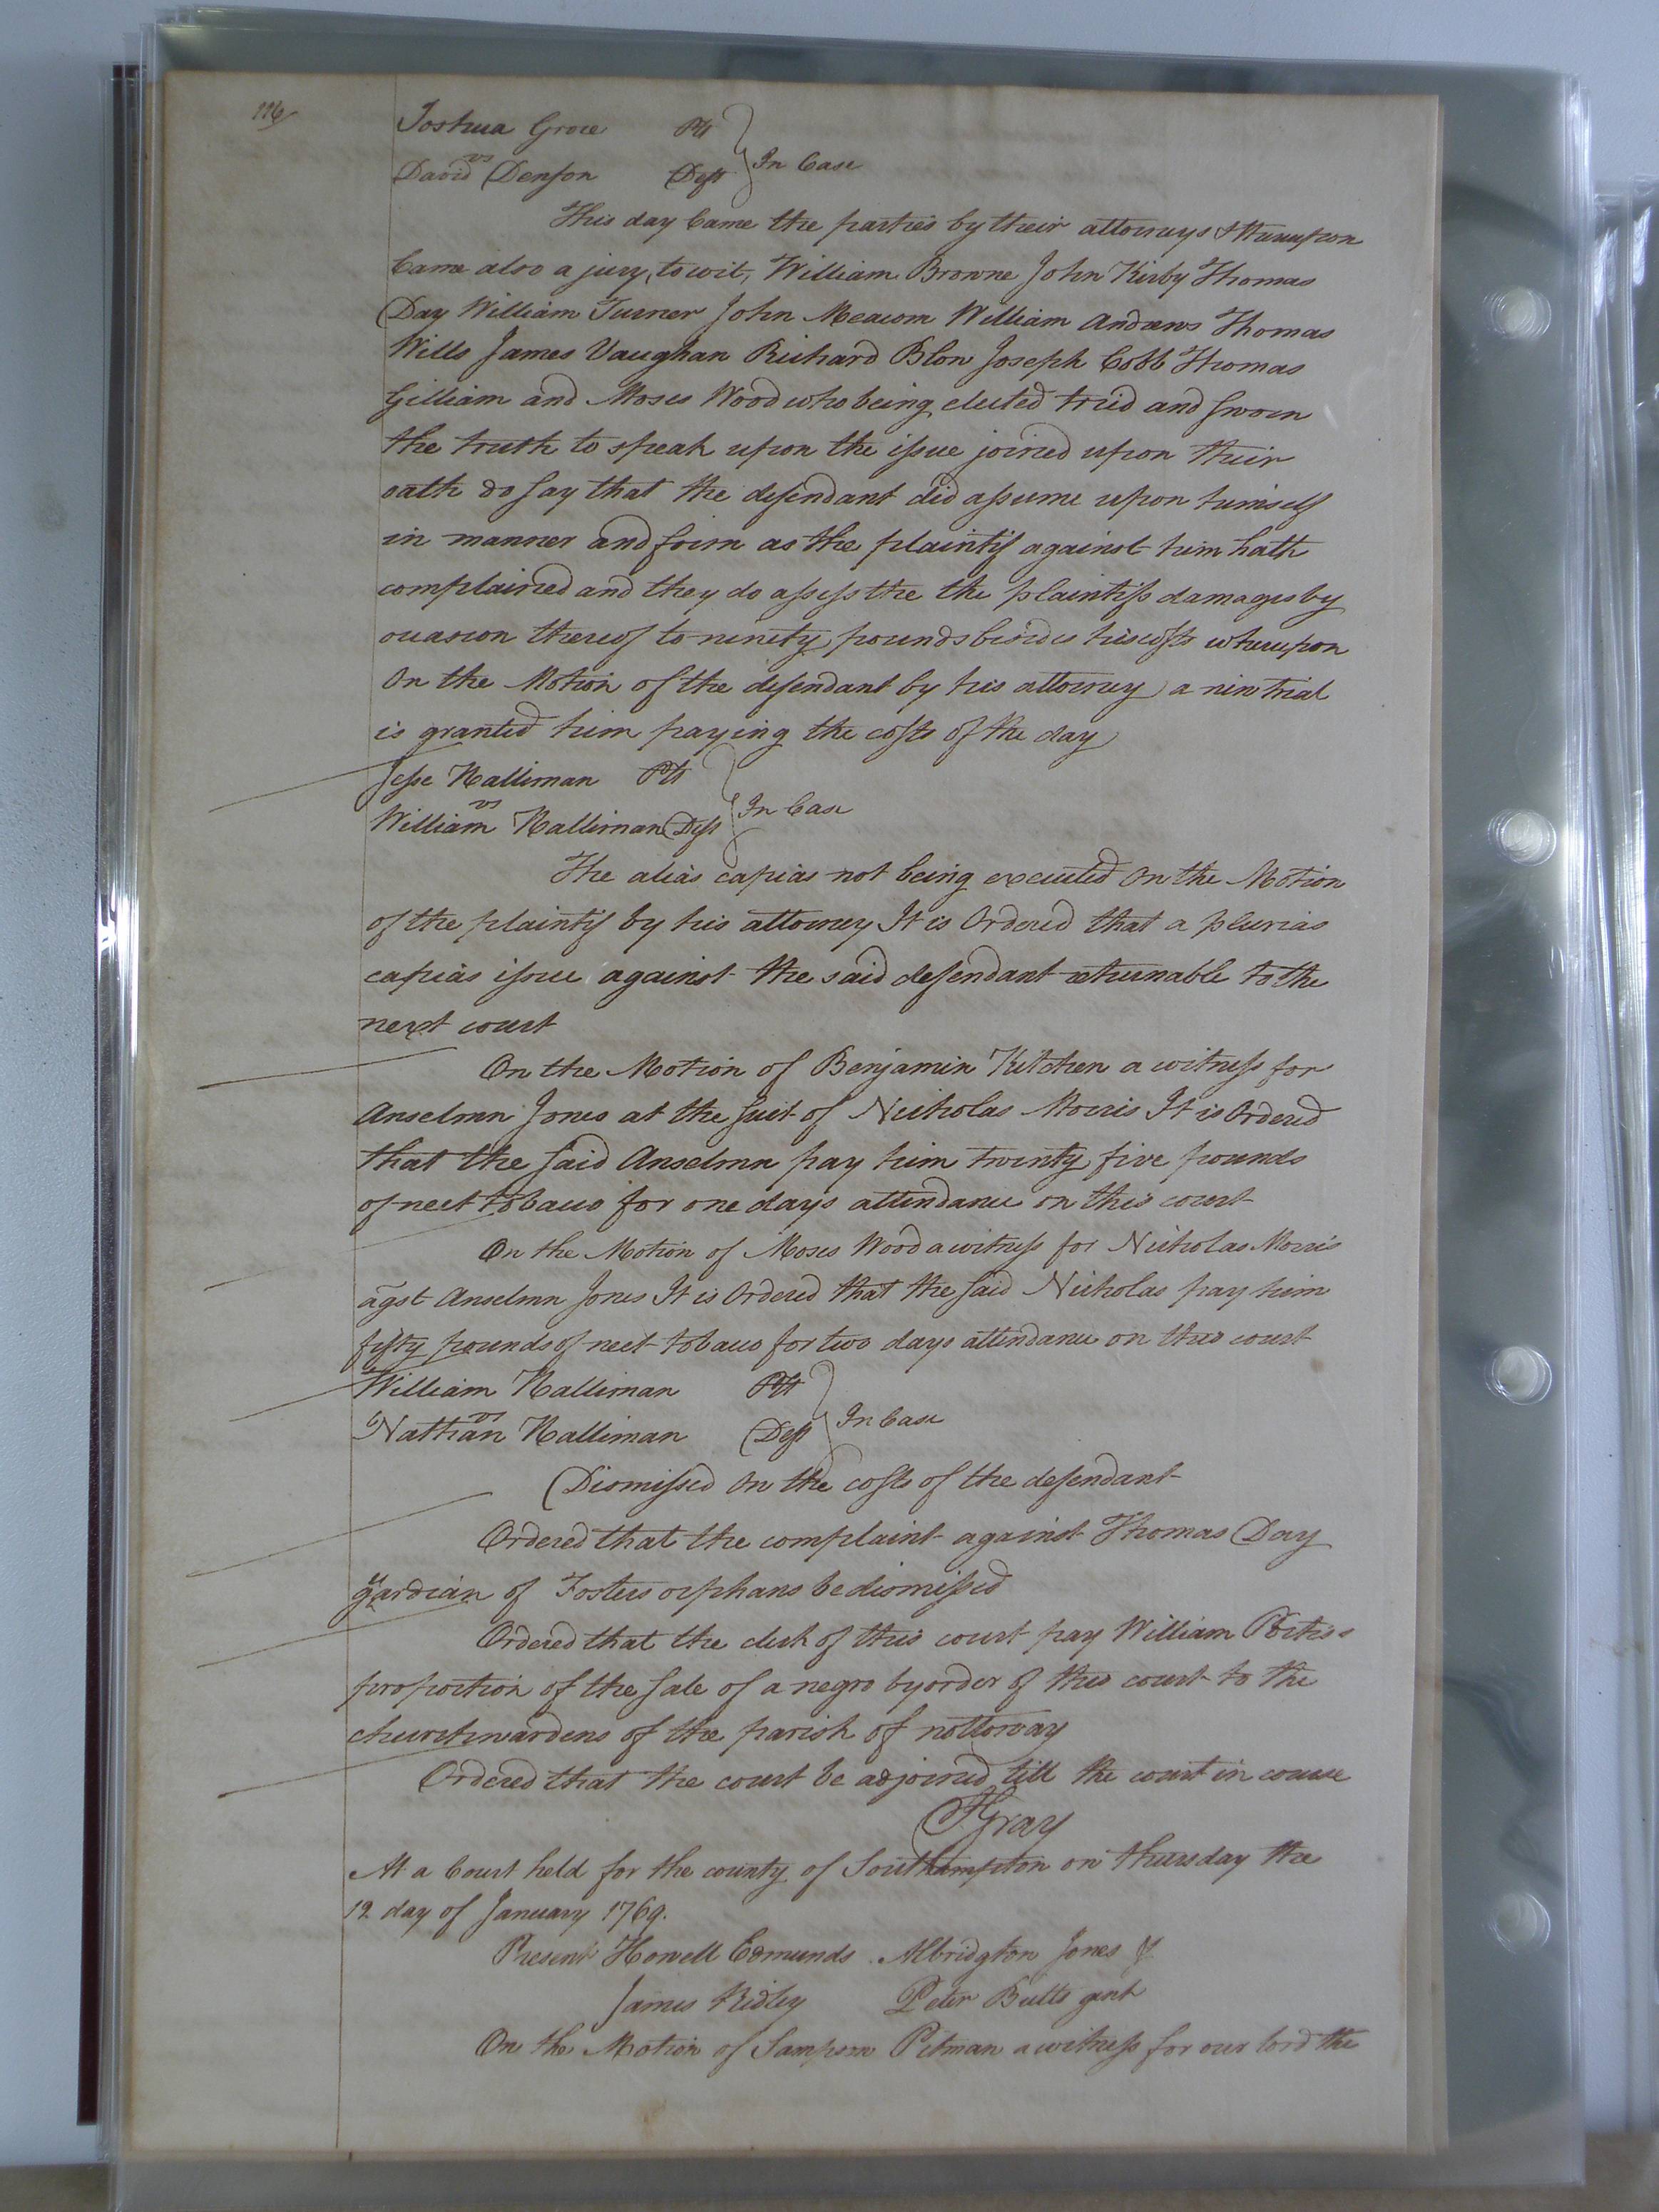 116
Joshua Grove Plt
vs In Case
David Denson Deft
This day Came the parties by their attorneys & thereupon
Came also a jury, to wit, William Browne John Kirby Thomas
Day William Turner John Meacom William Andrews Thomas
Wills James Vaughan Richard Blow Joseph Cobb Thomas
Gilliam and Moses Wood who being elected tried and sworn
the truth to speak upon the issue joined upon their
oath do say that the defendant did assume upon himself
in manner and form as the plaintif against him hath
complained and they do assess the the plaintifs damages by
occasion thereof to ninety pounds besides his costs whereupon
On the Motion of the defendant by his attorney a new trial
is granted him paying the costs of the day
Jesse Halliman Plt
vs In Case
William Halliman Deft
The alias capias not being executed On the Motion
of the plaintif by his attorney It is Ordered that a plurias
capias issue against the said defendant returnable to the
next court
On the Motion of Benjamin Kitchen a witness for
Anselmn Jones at the suit of Nicholas Morris It is Ordered
that the said Anselmn pay him twenty five pounds
of neet tobacco for one days attendance on this court
On the Motion of Moses Wood a witness for Nicholas Morris
agst Anselmn Jones It is Ordered that the said Nicholas pay him
fifty pounds of neet tobacco for two days attendance on this court
William Halliman Plt
vs In Case
Nathan Halliman Deft
Dismissed On the costs of the defendant
Ordered that the complaint against Thomas Day
guardian of Fosters orphans be dismissed
Ordered that the clerk of this court pay William
proportion of the sale of a negro by order of this court to the
churchwardens of the parish of nottoway
Ordered that the court be adjoined till the court in course
Gray
At a Court held for the county of Southampton on thursday the
12 day of January 1769.
Present Howell Edmunds Albridgton Jones
James Ridley Peter Butts gent
On the Motion of Sampson Pitman a witness for our lord the